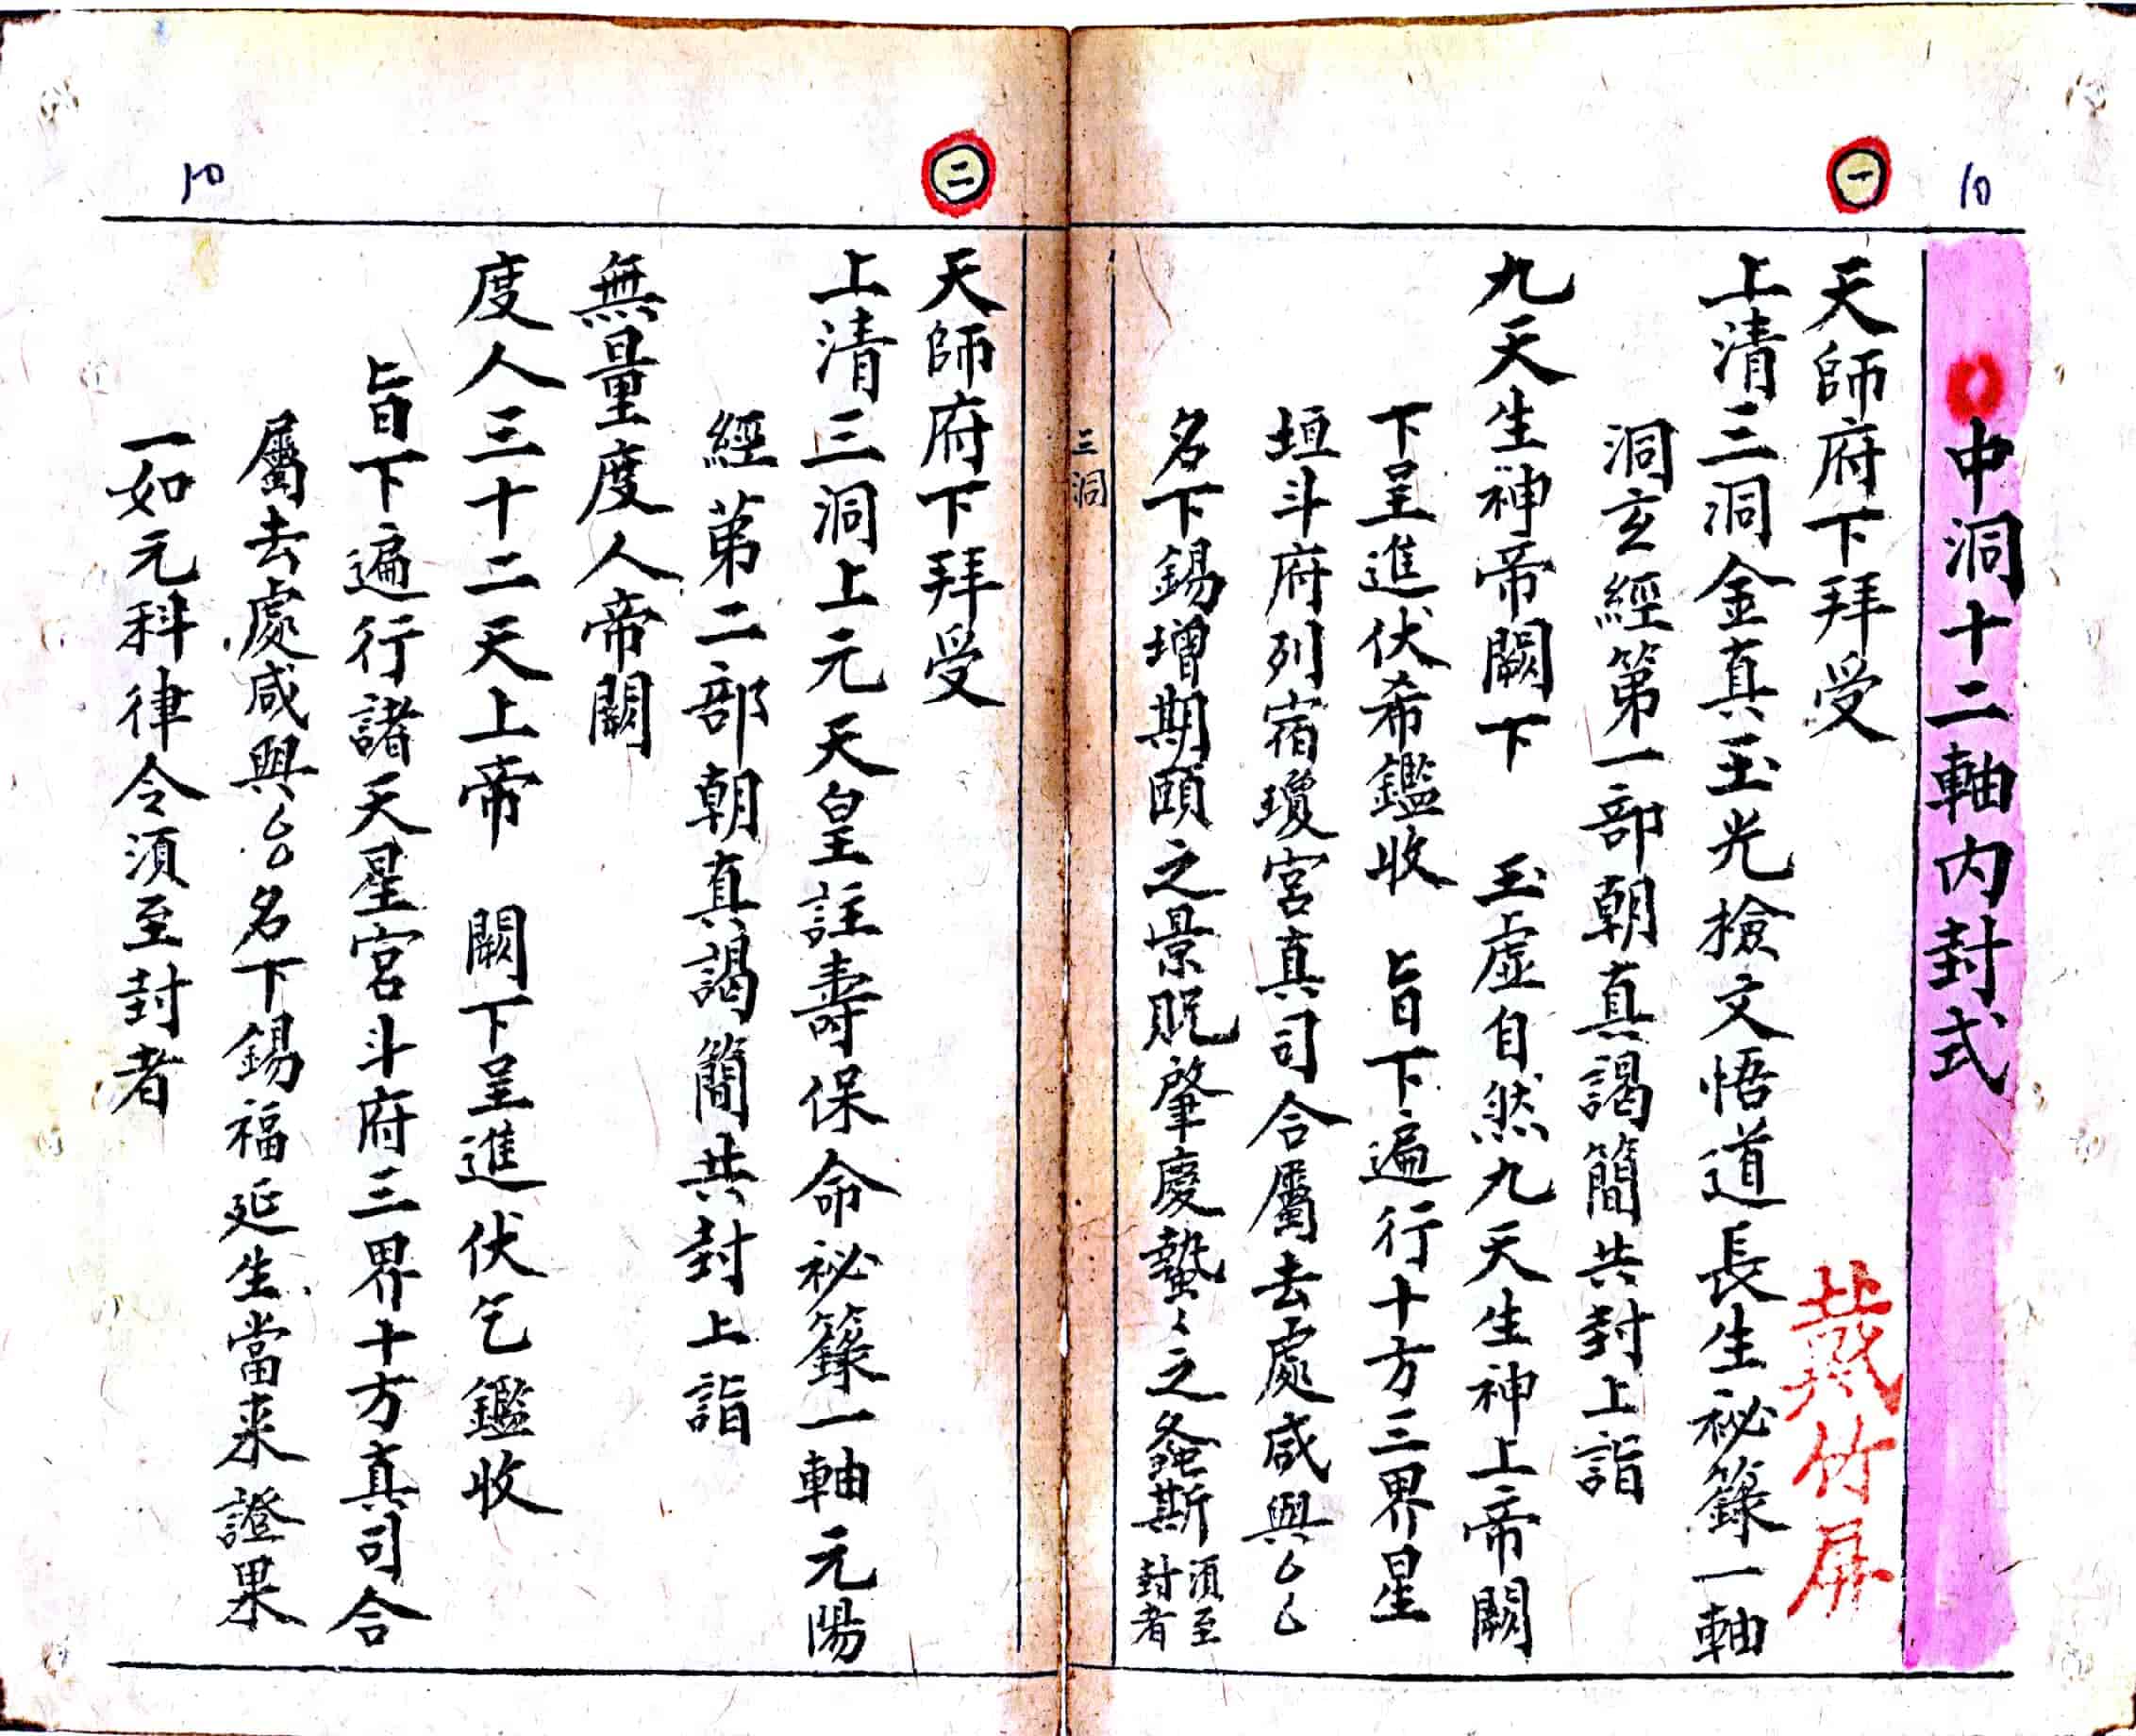 10
中洞十二軸内封式
一
天師府下拜受
戴竹屏
上清三洞金真玉光檢文悟道長生祕籙一軸
洞玄經第一部朝真謁簡共封上詣
九天生神帝闕下 玉虛自然九天生神上帝闕
下呈進伏希鑑收 旨下遍行十方三界星
垣斗府列宿瓊宮真司合屬去處咸興厶厶
名下錫增期頤之景貺肇慶蟄々之螽斯 須至封者
三洞
二
天師府下拜受
上清三洞上元天皇註壽保命祕籙一軸元陽
經第二部朝真謁簡共封上詣
無量度人帝闕
度人三十二天上帝 闕下呈進伏乞鑑收
旨下遍行諸天星宮斗府三界十方真司合
屬去處咸興厶名下錫福延生當来證果
一如元科律令須至封者
10